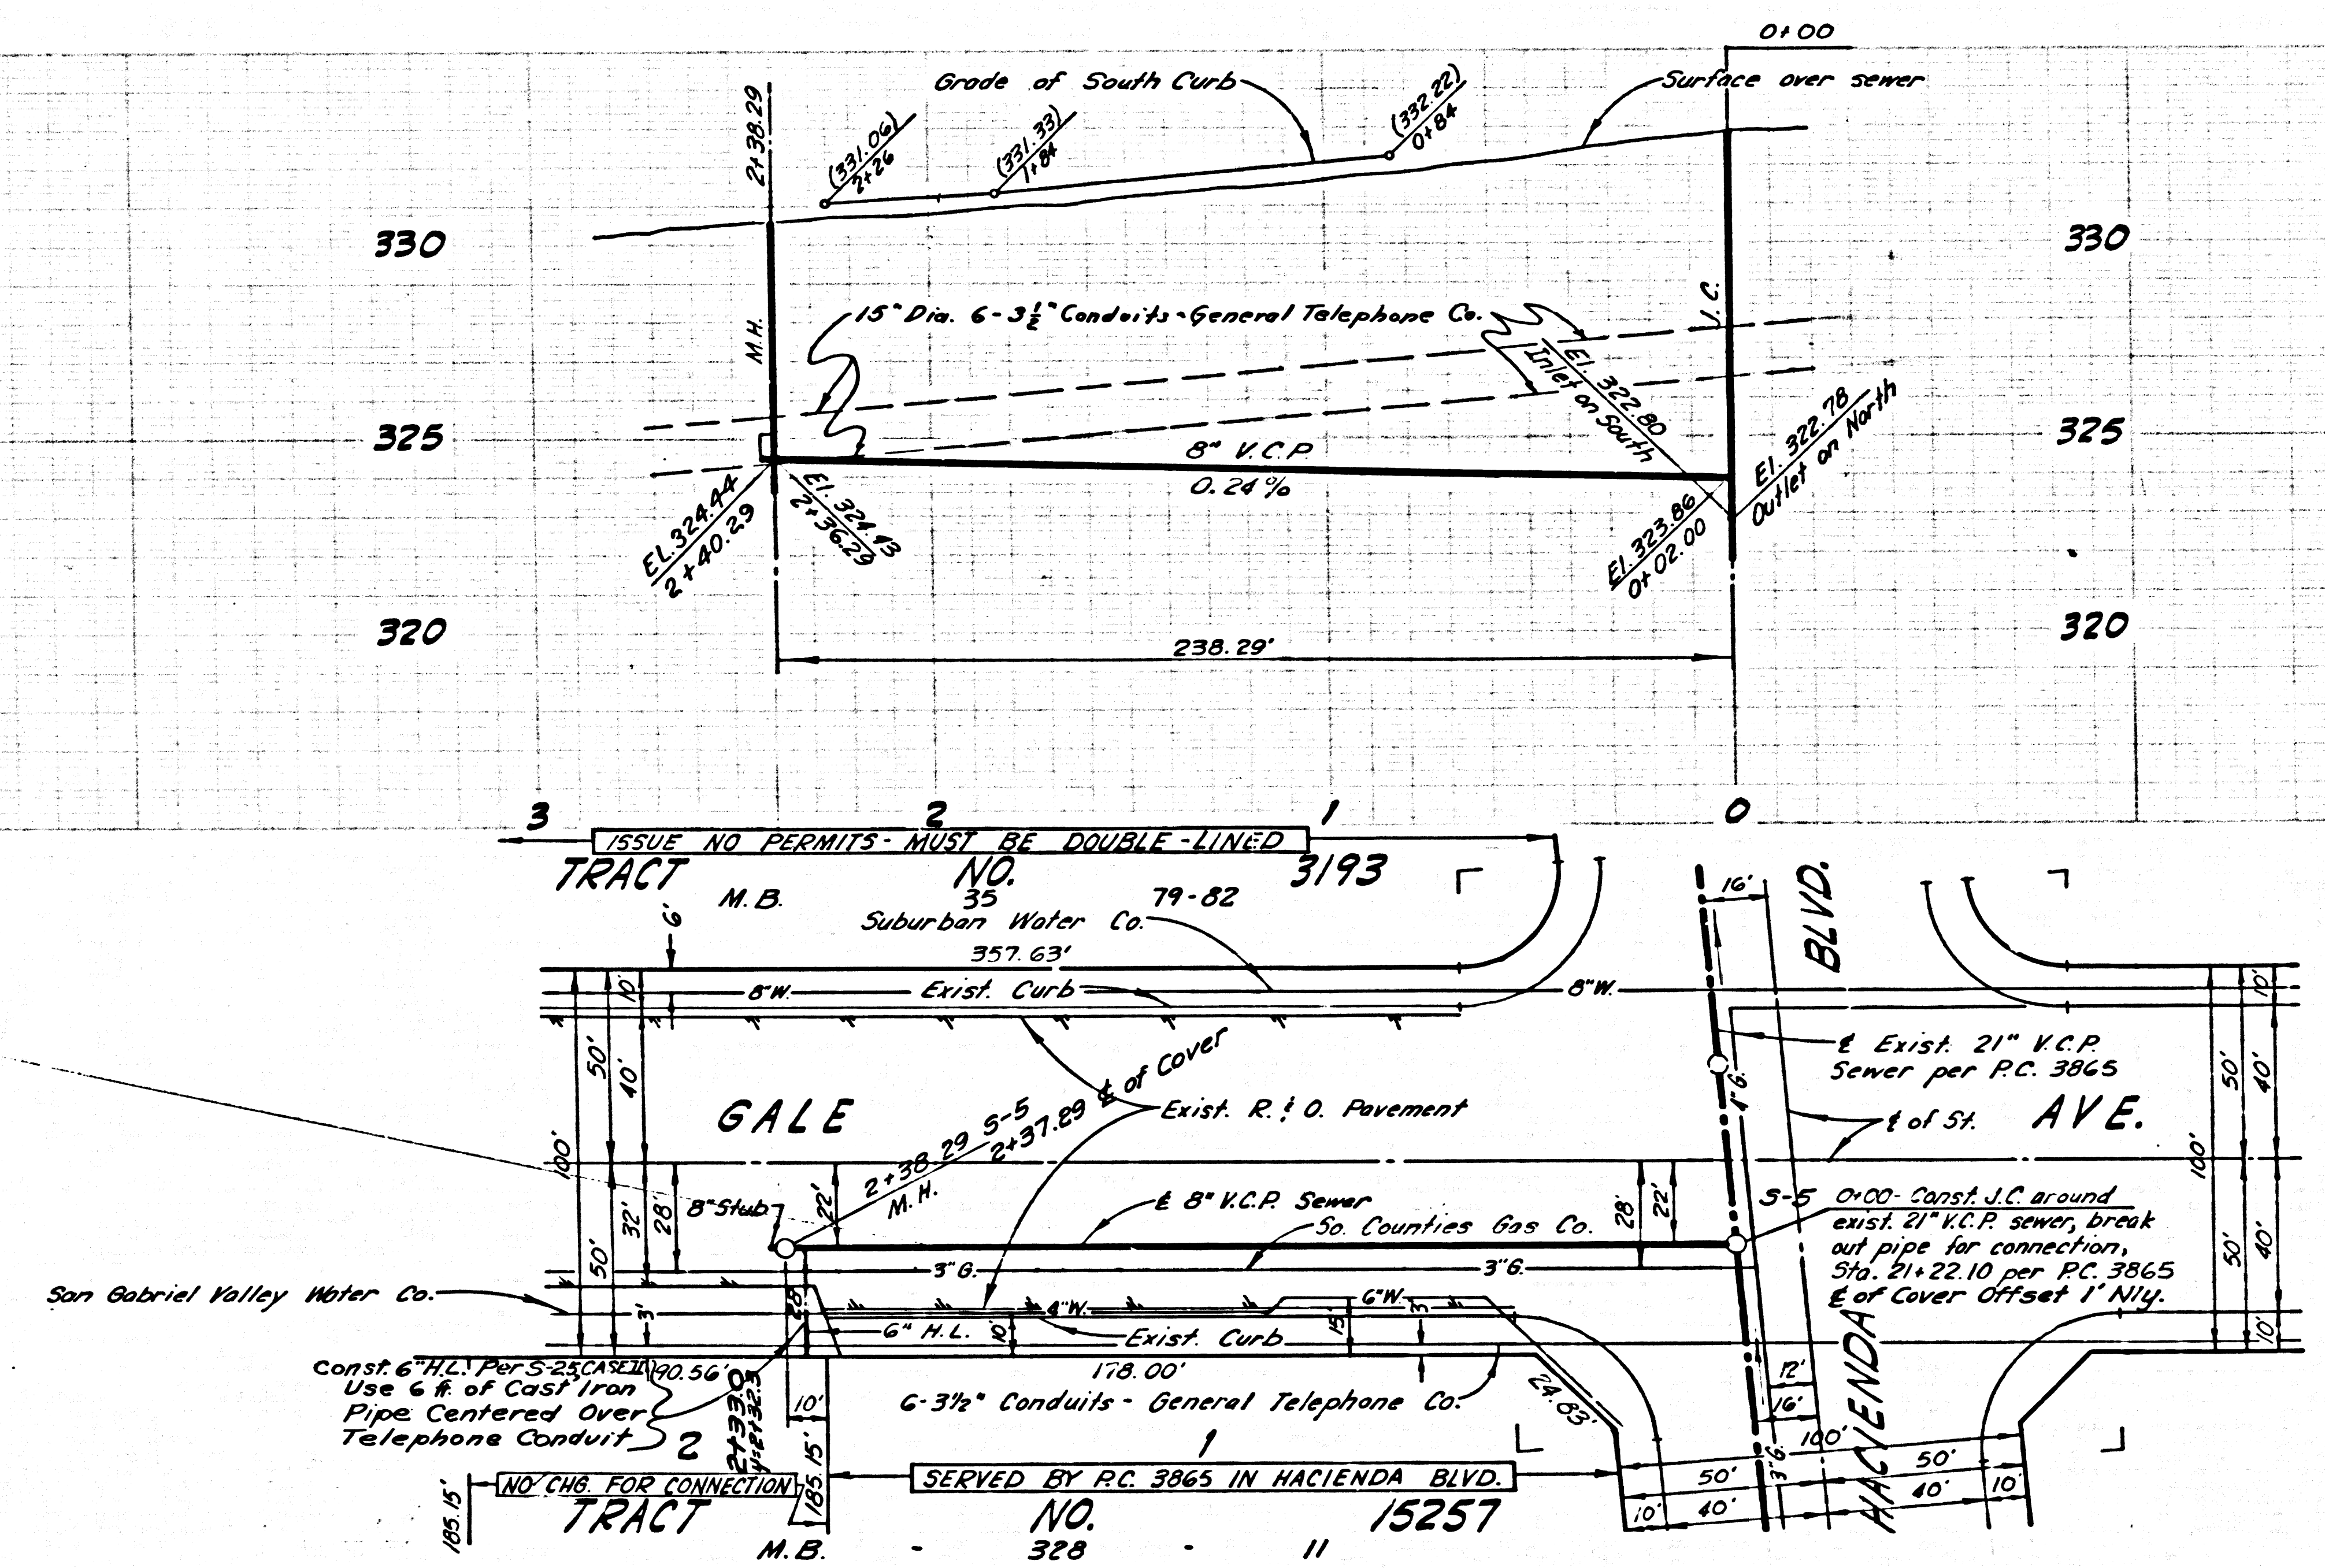 0+00
Grade of South Curb
Surface over sewer
2+38.29
(331.06)
2+26
(331.33)
1+84
(332.22)
0+84
330
330
15" Dia. 6-3½" Conduits - General Telephone Co.
M.H.
J.C.
El. 322.80
Inlet on South
El. 322.78
Outlet on North
325
325
8" V.C.P.
0.24%
EL.324.44
2+40.29
El. 324.43
2+36.29
El. 323.86
0+02.00
320
320
238.29'
3 2 1 0
ISSUE NO PERMITS - MUST BE DOUBLE-LINED
TRACT NO. 3193
M.B. 35 79-82
Suburban Water Co.
357.63'
6'
16'
BLVD.
8"W.
Exist. Curb
8"W.
10'
50'
40'
100'
10'
50'
40'
100'
℄ Exist. 21" V.C.P.
Sewer per P.C. 3865
4"G.
℄ of St.
GALE
AVE.
S-5
2+37.29 ℄ of Cover
2+38.29
M.H.
Exist. R. & O. Pavement
8" Stub
22'
℄ 8" V.C.P. Sewer
So. Counties Gas Co.
28'
22'
32'
28'
50'
3"G.
3"G.
S-5
0+00 - Const. J.C. around
exist. 21" V.C.P. sewer, break
out pipe for connection,
Sta. 21+22.10 per P.C. 3865
℄ of Cover Offset 1' Nly.
50'
40'
10'
San Gabriel Valley Water Co.
3'
28'
4"W.
6"W.
6" H.L.
10'
Exist. Curb
15'
3'
Const. 6" H.L. Per S-25, CASE II
Use 6 ft. of Cast Iron
Pipe Centered Over
Telephone Conduit
190.56'
178.00'
6-3½" Conduits - General Telephone Co.
24.83'
12'
16'
HACIENDA
2
2+33.0
10'
185.15'
1
100'
3"G.
50'
50'
10'
40'
40'
10'
185.15'
NO CHG. FOR CONNECTION
SERVED BY P.C. 3865 IN HACIENDA BLVD.
TRACT NO. 15257
M.B. - 328 - 11